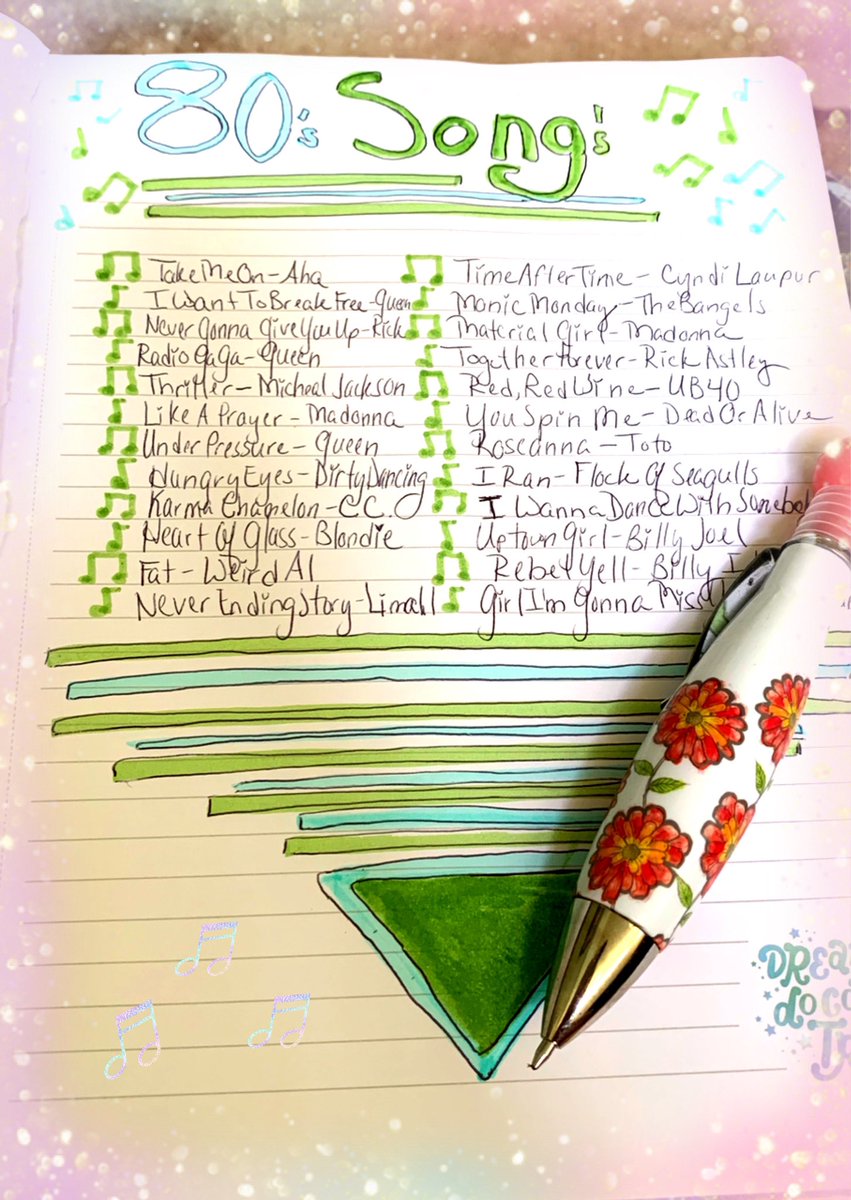 80's Song's
Take Me On - Aha
I Want To Break Free - Queen
Never Gonna Give You Up - Rick
Radio GaGa - Queen
Thriller - Micheal Jackson
Like A Prayer - Madonna
Under Pressure - Queen
Hungry Eyes - Dirty Dancing
Karma Chamelon - C.C.
Heart Of Glass - Blondie
Fat - Weird Al
Never Ending Story - Limahl
Time After Time - Cyndi Laupur
Manic Monday - The Bangels
Material Girl - Madonna
Together Forever - Rick Astley
Red, Red Wine - UB40
You Spin Me - Dead Or Alive
Roseanna - Toto
I Ran - Flock Of Seagulls
I Wanna Dance With
Uptown Girl - Billy Joel
Rebel Yell - Billy
Girl I'm Gonna Miss
do